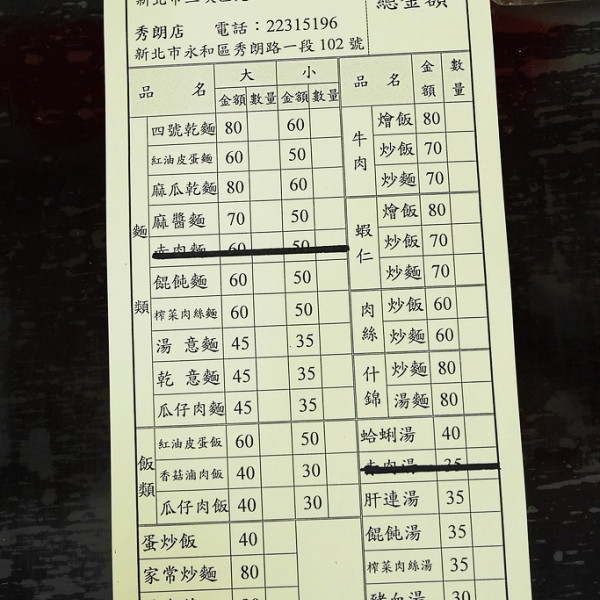 總金額
秀朗店 電話：22315196
新北市永和區秀朗路一段102號
品名 大 小
金額 數量 金額 數量
麵類
四號乾麵 80 60
紅油皮蛋麵 60 50
麻瓜乾麵 80 60
麻醬麵 70 50
赤肉麵 60 50
餛飩麵 60 50
榨菜肉絲麵 60 50
湯意麵 45 35
乾意麵 45 35
瓜仔肉麵 45 35
飯類
紅油皮蛋飯 60 50
香菇滷肉飯 40 30
瓜仔肉飯 40 30
蛋炒飯 40
家常炒麵 80
品名 金額 數量
牛肉
燴飯 80
炒飯 70
炒麵 70
蝦仁
燴飯 80
炒飯 70
炒麵 70
肉絲
炒飯 60
炒麵 60
什錦
炒麵 80
湯麵 80
蛤蜊湯 40
赤肉湯 35
肝連湯 35
餛飩湯 35
榨菜肉絲湯 35
豬血湯 30